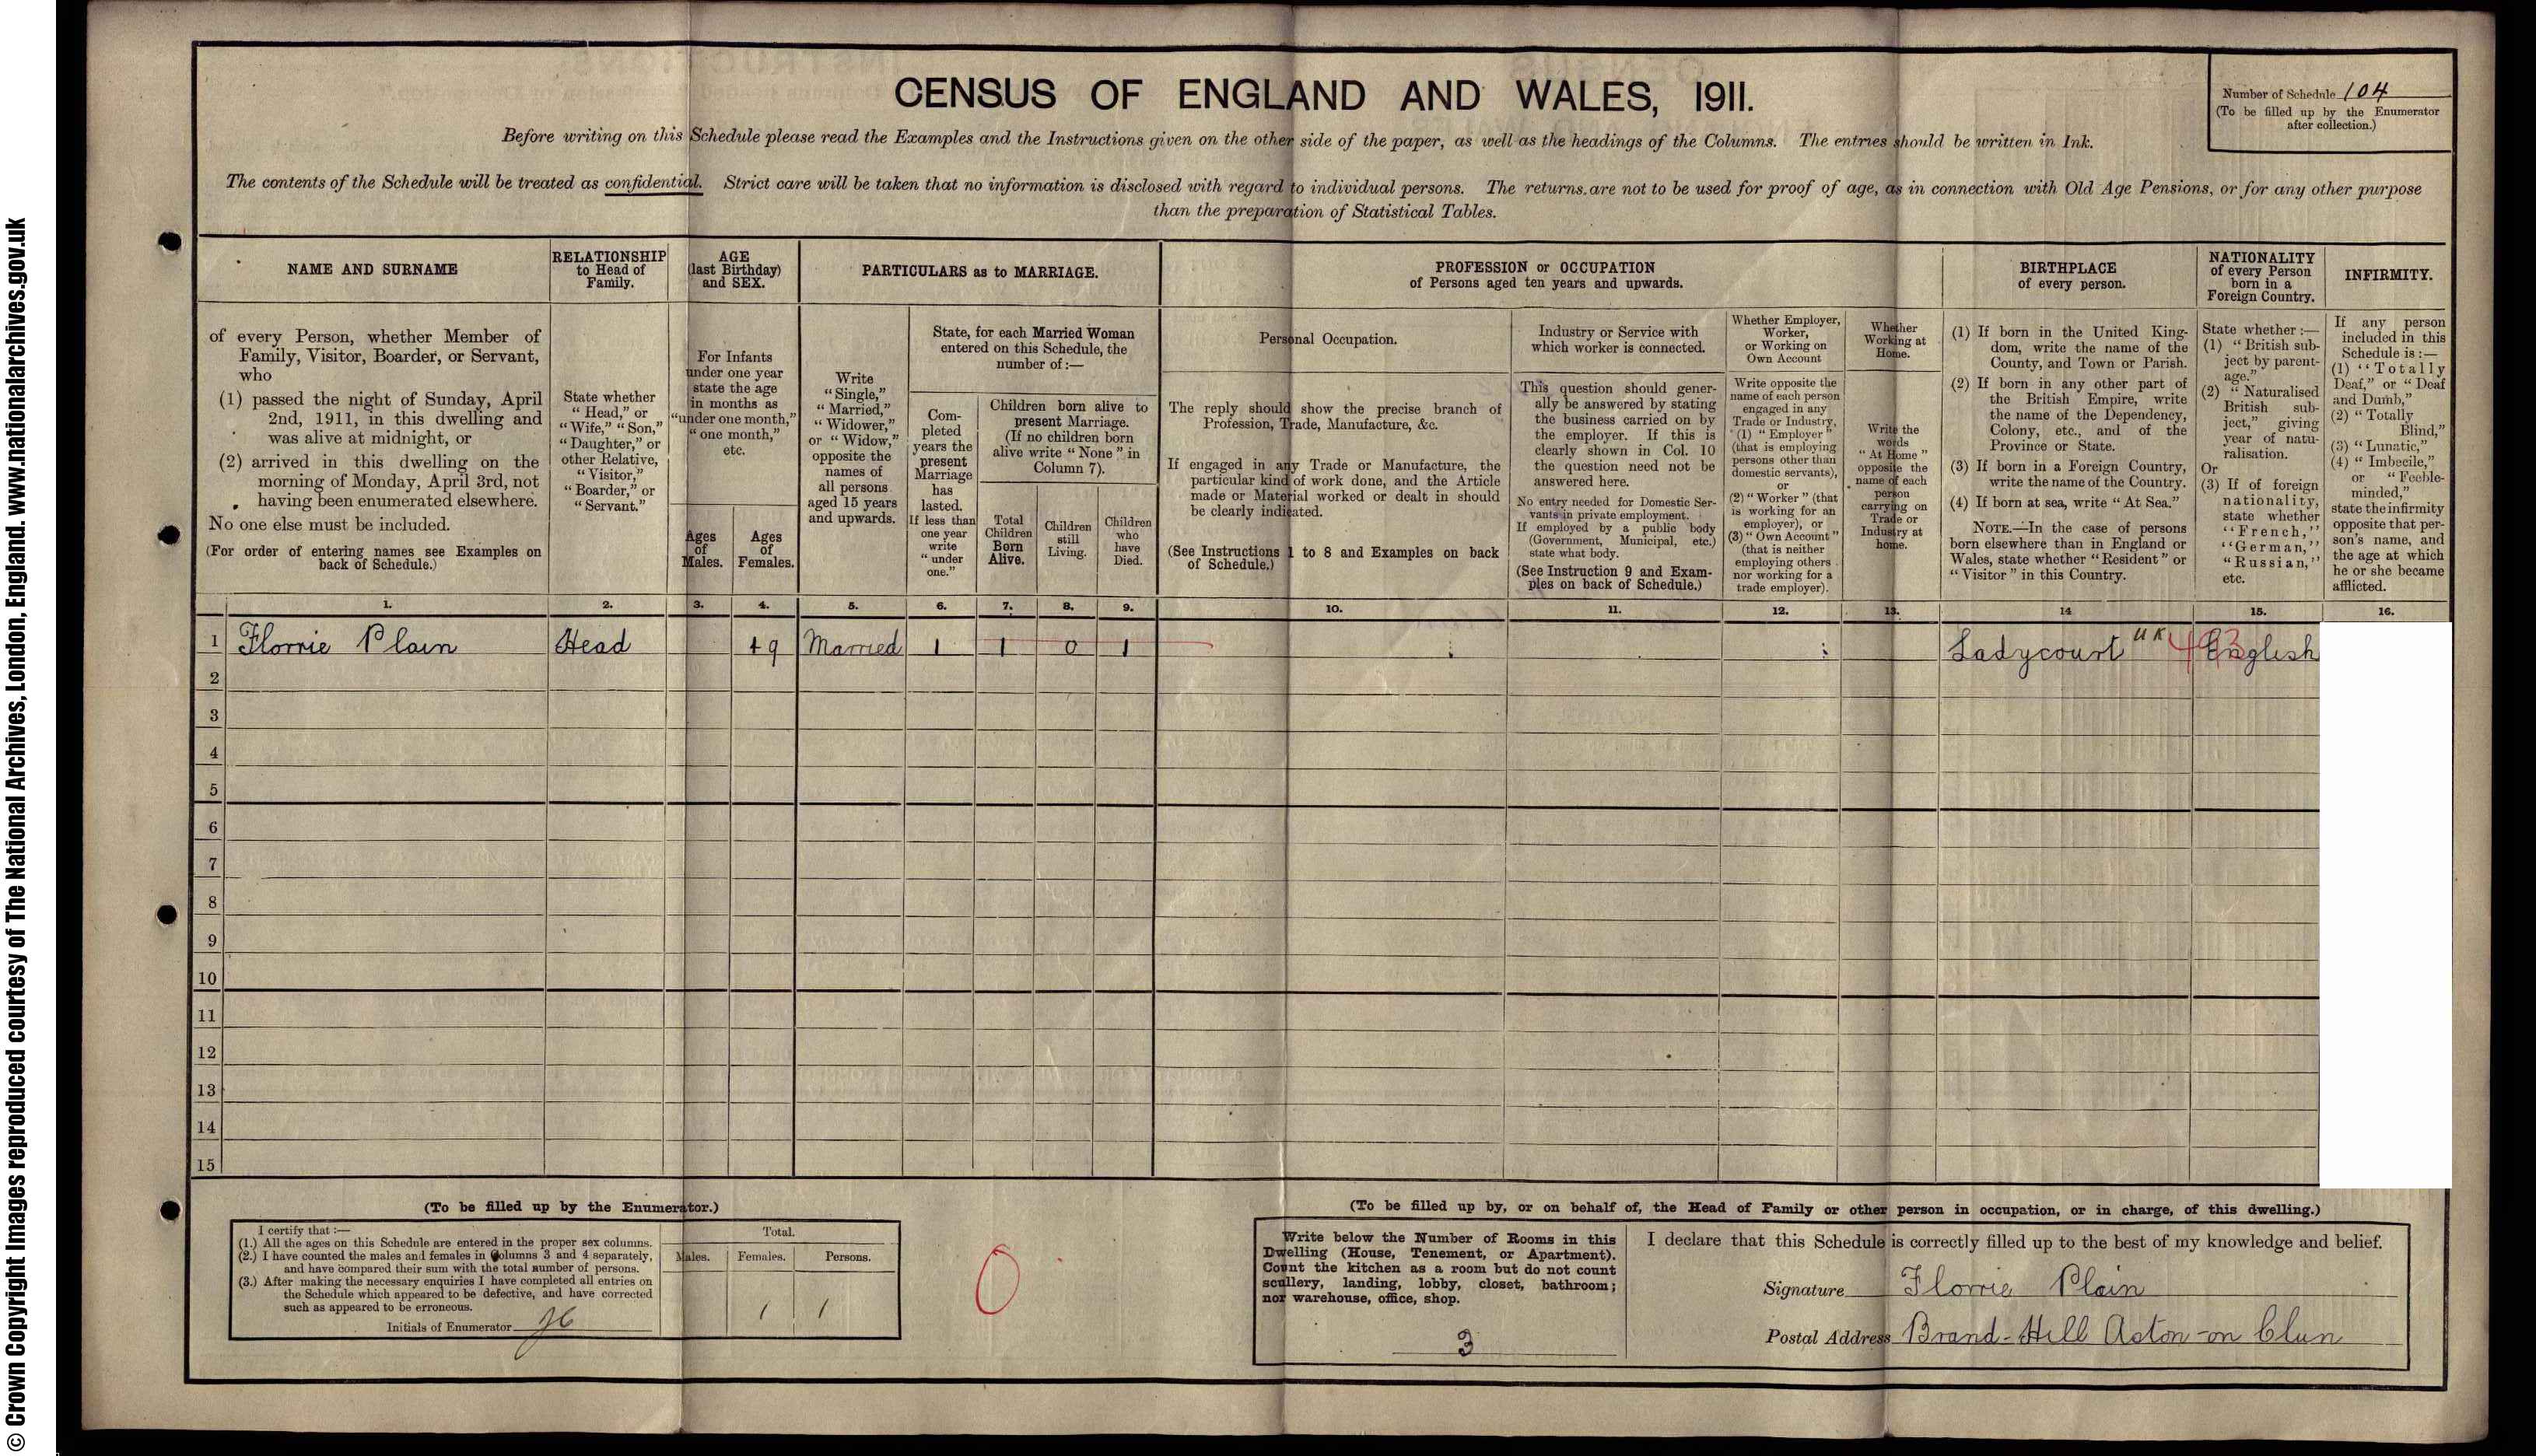 © Crown Copyright Images reproduced courtesy of The National Archives, London, England. www.nationalarchives.gov.uk
CENSUS OF ENGLAND AND WALES, 1911.
Number of Schedule 104
(To be filled up by the Enumerator
after collection.)
Before writing on this Schedule please read the Examples and the Instructions given on the other side of the paper, as well as the headings of the Columns. The entries should be written in Ink.
The contents of the Schedule will be treated as confidential. Strict care will be taken that no information is disclosed with regard to individual persons. The returns are not to be used for proof of age, as in connection with Old Age Pensions, or for any other purpose
than the preparation of Statistical Tables.
NAME AND SURNAME
of every Person, whether Member of
Family, Visitor, Boarder, or Servant,
who
(1) passed the night of Sunday, April
2nd, 1911, in this dwelling and
was alive at midnight, or
(2) arrived in this dwelling on the
morning of Monday, April 3rd, not
having been enumerated elsewhere.
No one else must be included.
(For order of entering names see Examples on
back of Schedule.)
RELATIONSHIP
to Head of
Family.
State whether
"Head," or
"Wife," "Son,"
"Daughter," or
other Relative,
"Visitor,"
"Boarder," or
"Servant."
AGE
(last Birthday)
and SEX.
For Infants
under one year
state the age
in months as
"under one month,"
"one month,"
etc.
Ages
of
Males.
Ages
of
Females.
PARTICULARS as to MARRIAGE.
Write
"Single,"
"Married,"
"Widower,"
or "Widow,"
opposite the
names of
all persons
aged 15 years
and upwards.
State, for each Married Woman
entered on this Schedule, the
number of:—
Com-
pleted
years the
present
Marriage
has
lasted.
If less than
one year
write
"under
one."
Children born alive to
present Marriage.
(If no children born
alive write "None" in
Column 7).
Total
Children
Born
Alive.
Children
still
Living.
Children
who
have
Died.
PROFESSION or OCCUPATION
of Persons aged ten years and upwards.
Personal Occupation.
The reply should show the precise branch of
Profession, Trade, Manufacture, &c.
If engaged in any Trade or Manufacture, the
particular kind of work done, and the Article
made or Material worked or dealt in should
be clearly indicated.
(See Instructions 1 to 8 and Examples on back
of Schedule.)
Industry or Service with
which worker is connected.
This question should gener-
ally be answered by stating
the business carried on by
the employer. If this is
clearly shown in Col. 10
the question need not be
answered here.
No entry needed for Domestic Ser-
vants in private employment.
If employed by a public body
(Government, Municipal, etc.)
state what body.
(See Instruction 9 and Exam-
ples on back of Schedule.)
Whether Employer,
Worker,
or Working on
Own Account
Write opposite the
name of each person
engaged in any
Trade or Industry,
(1) "Employer"
(that is employing
persons other than
domestic servants),
or
(2) "Worker" (that
is working for an
employer), or
(3) "Own Account"
(that is neither
employing others
nor working for a
trade employer).
Whether
Working at
Home.
Write the
words
"At Home"
opposite the
name of each
person
carrying on
Trade or
Industry at
home.
BIRTHPLACE
of every person.
(1) If born in the United King-
dom, write the name of the
County, and Town or Parish.
(2) If born in any other part of
the British Empire, write
the name of the Dependency,
Colony, etc., and of the
Province or State.
(3) If born in a Foreign Country,
write the name of the Country.
(4) If born at sea, write "At Sea."
NOTE.—In the case of persons
born elsewhere than in England or
Wales, state whether "Resident" or
"Visitor" in this Country.
NATIONALITY
of every Person
born in a
Foreign Country.
State whether:—
(1) "British sub-
ject by parent-
age."
(2) "Naturalised
British sub-
ject," giving
year of natu-
ralisation.
Or
(3) If of foreign
nationality,
state whether
"French,"
"German,"
"Russian,"
etc.
INFIRMITY.
If any person
included in this
Schedule is:—
(1) "Totally
Deaf," or "Deaf
and Dumb,"
(2) "Totally
Blind,"
(3) "Lunatic,"
(4) "Imbecile,"
or "Feeble-
minded,"
state the infirmity
opposite that per-
son's name, and
the age at which
he or she became
afflicted.
1. 2. 3. 4. 5. 6. 7. 8. 9. 10. 11. 12. 13. 14 15. 16.
1 Florrie Plain Head 49 Married 1 1 0 1 Ladycourt UK English
2
3
4
5
6
7
8
9
10
11
12
13
14
15
(To be filled up by the Enumerator.)
I certify that:—
(1.) All the ages on this Schedule are entered in the proper sex columns.
(2.) I have counted the males and females in Columns 3 and 4 separately,
and have compared their sum with the total number of persons.
(3.) After making the necessary enquiries I have completed all entries on
the Schedule which appeared to be defective, and have corrected
such as appeared to be erroneous.
Initials of Enumerator
Total.
Males. Females. Persons.
1 1
0
(To be filled up by, or on behalf of, the Head of Family or other person in occupation, or in charge, of this dwelling.)
Write below the Number of Rooms in this
Dwelling (House, Tenement, or Apartment).
Count the kitchen as a room but do not count
scullery, landing, lobby, closet, bathroom;
nor warehouse, office, shop.
3
I declare that this Schedule is correctly filled up to the best of my knowledge and belief.
Signature Florrie Plain
Postal Address Brand-Hill Aston-on Clun